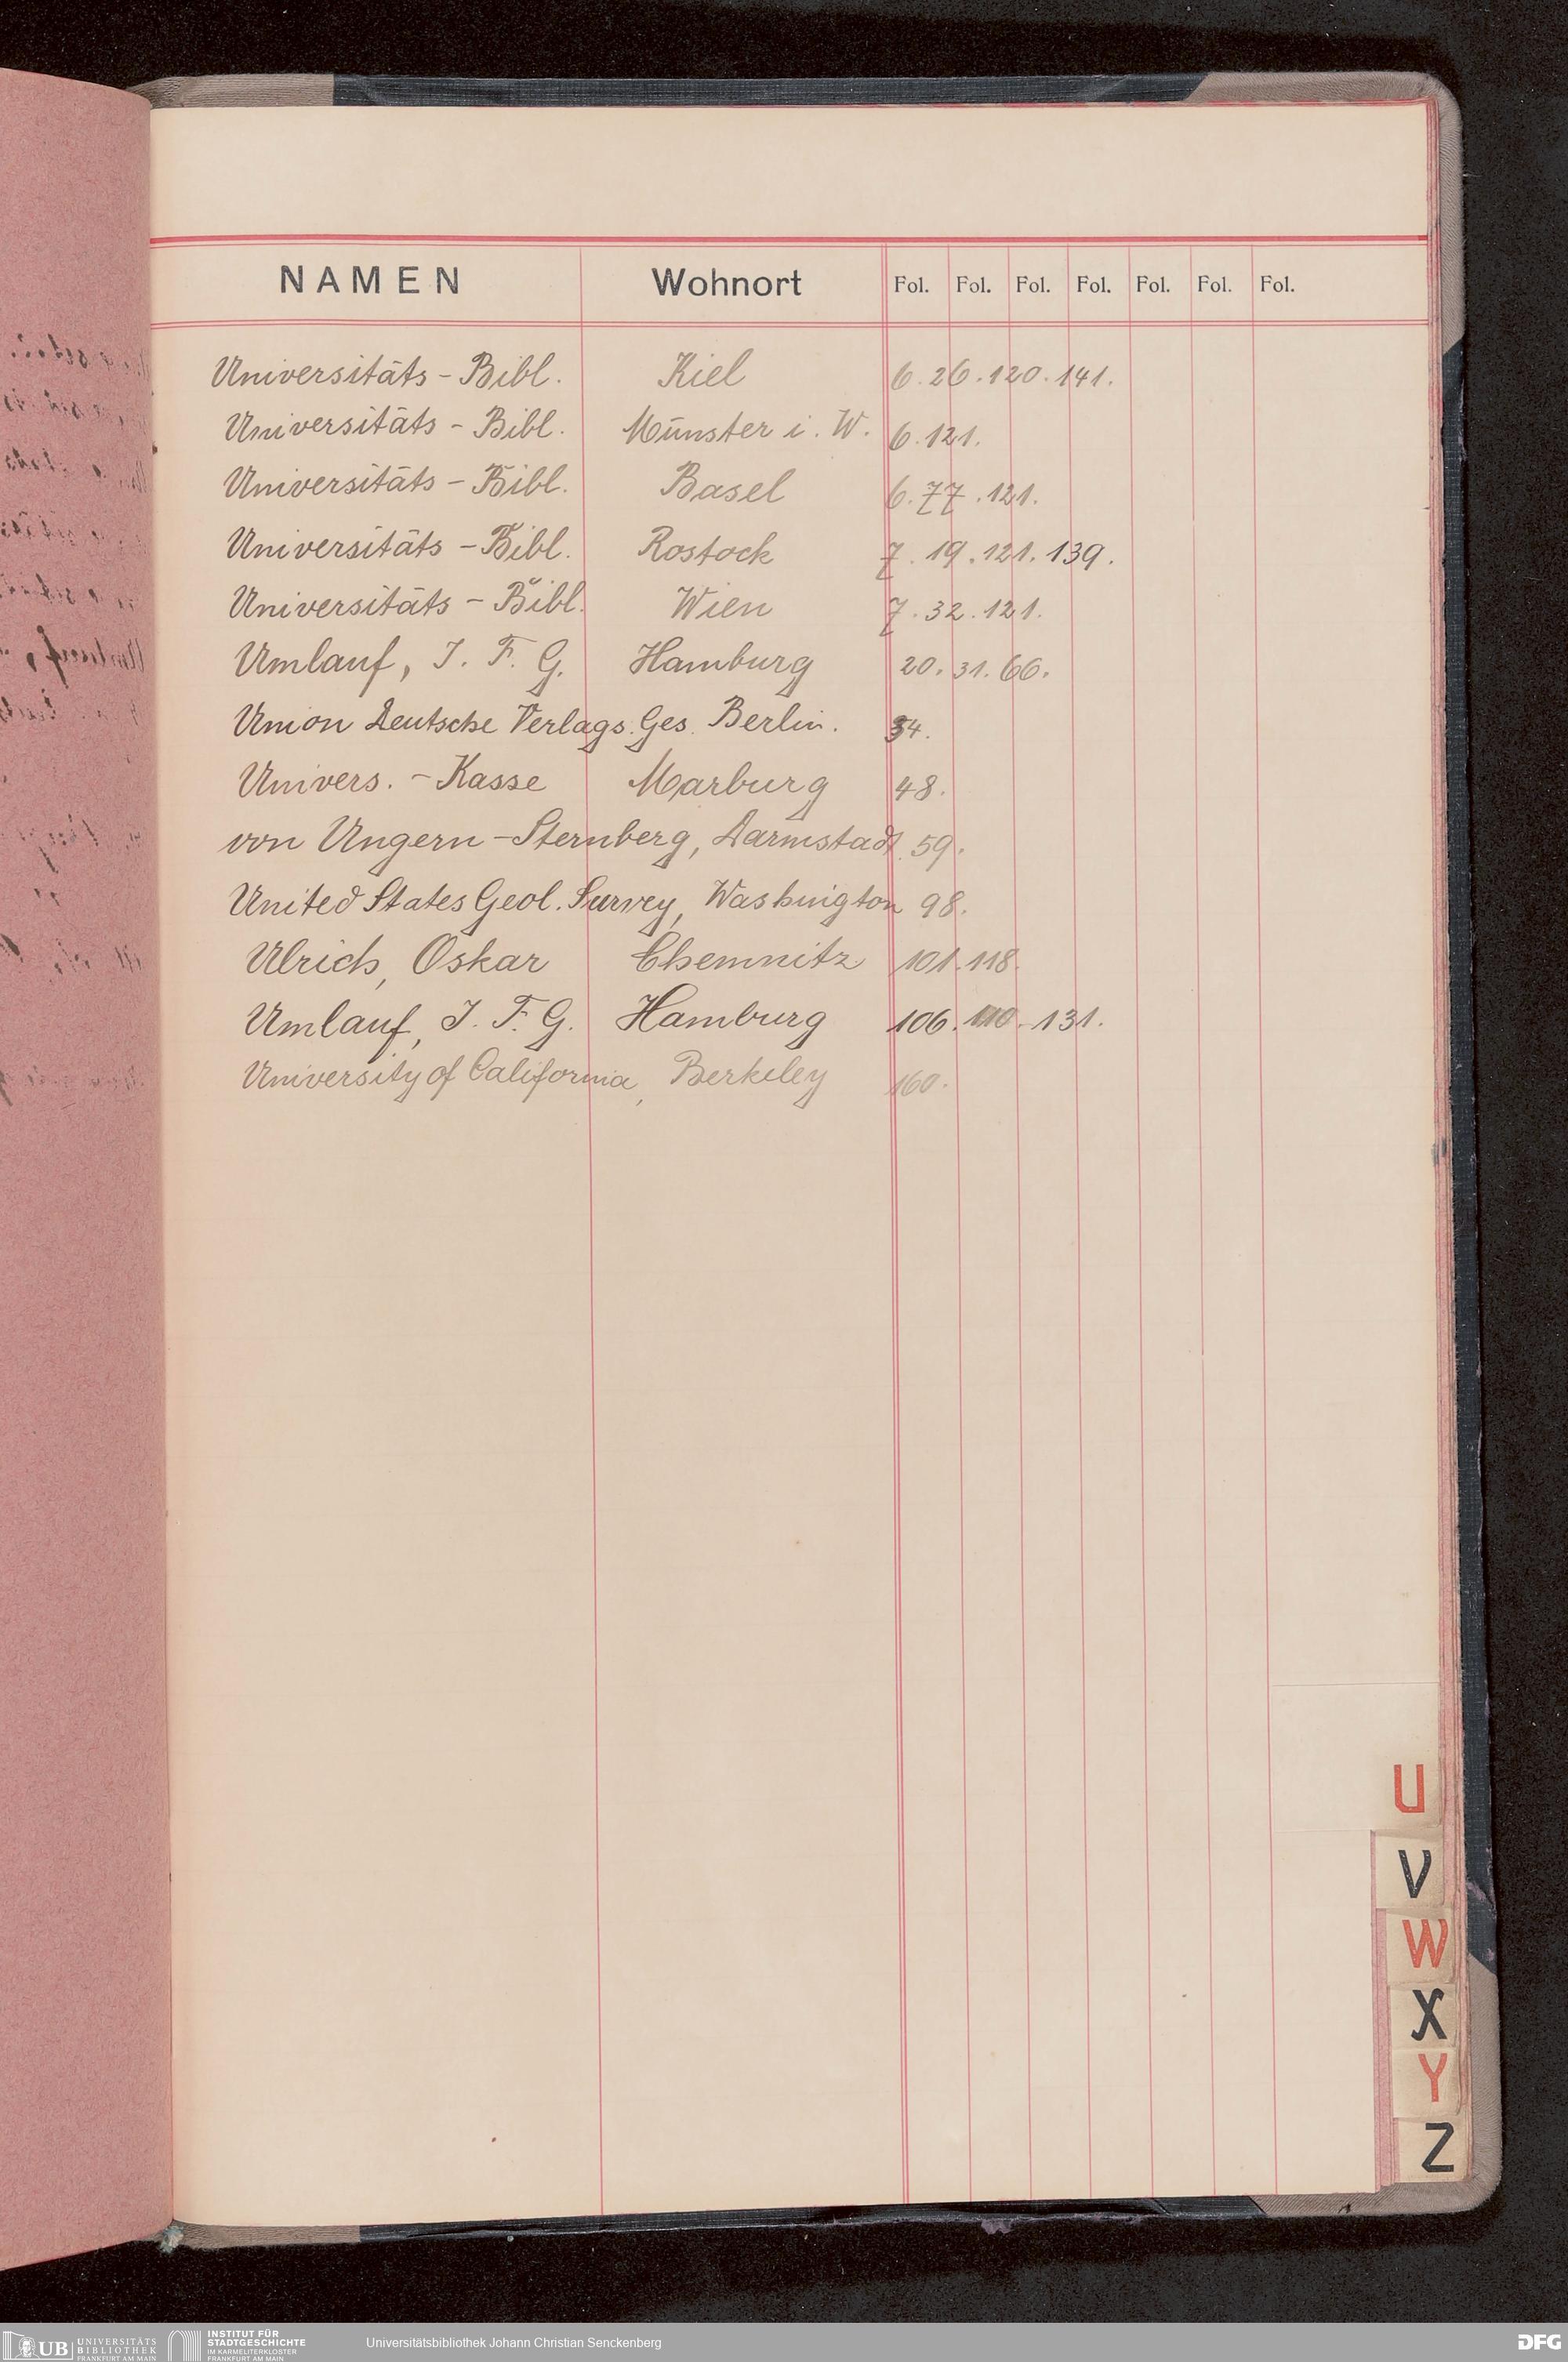 NAMEN Wohnort Fol. Fol. Fol. Fol. Fol. Fol. Fol.
Universitäts-Bibl. Kiel 6. 26. 120. 141.
Universitäts-Bibl. Münster i. W. 6. 121.
Universitäts-Bibl. Basel 6. 77. 121.
Universitäts-Bibl. Rostock 7. 19. 121. 139.
Universitäts-Bibl. Wien 7. 32. 121.
Umlauf, J. F. G. Hamburg 20. 31. 66.
Union Deutsche Verlags. Ges. Berlin. 34.
Univers.-Kasse Marburg 48.
von Ungern-Sternberg, Darmstadt 59.
United States Geol. Survey, Washington 98.
Ulrich, Oskar Chemnitz 101. 118.
Umlauf, J. F. G. Hamburg 106. 110. 131.
University of California, Berkeley 160.
U
V
W
X
Y
Z
UB UNIVERSITÄTS BIBLIOTHEK FRANKFURT AM MAIN
INSTITUT FÜR STADTGESCHICHTE IM KARMELITERKLOSTER FRANKFURT AM MAIN
Universitätsbibliothek Johann Christian Senckenberg
DFG